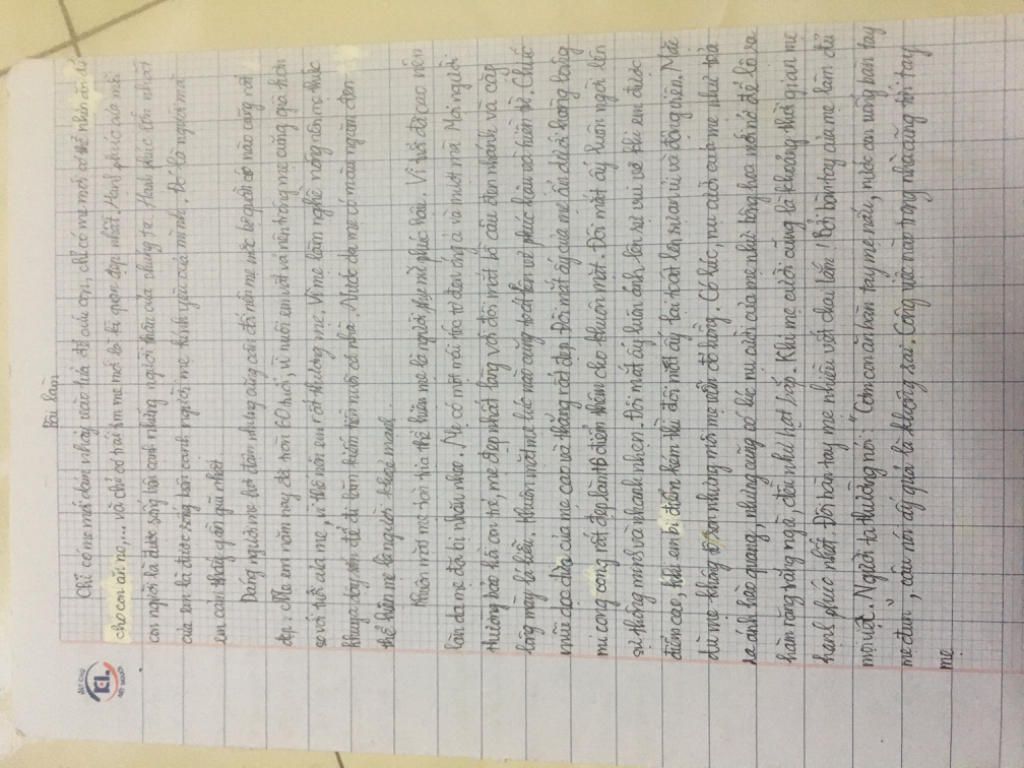 Bài làm
Chỉ có mẹ mới dám nhảy vào lửa để cứu con, chỉ có mẹ mới có thể nhịn ăn để
cho con ăn no,... và chỉ có trái tim mẹ mới là kì quan đẹp nhất. Hạnh phúc của mỗi
con người là được sống bên cạnh những người thân của chúng ta. Hạnh phúc lớn nhất
của em là được sống bên cạnh người mẹ kính yêu của mình. Đó là người mà
em cảm thấy gần gũi nhất.
Dáng người mẹ hơi đậm nhưng cũng cân đối nên mẹ mặc bộ quần áo nào cũng rất
đẹp. Mẹ em năm nay đã hơn 60 tuổi, vì nuôi em vất vả nên trông mẹ cũng già hơn
so với tuổi của mẹ, vì thế nên em rất thương mẹ. Vì mẹ làm nghề nông nên mẹ thức
khuya dậy sớm để đi làm kiếm tiền nuôi cả nhà. Nước da mẹ có màu ngăm đen
thể hiện mẹ là người khỏe mạnh.
Khuôn mặt mẹ tròn trịa thể hiện mẹ là người phụ nữ phúc hậu. Vì tuổi đã cao nên
làn da mẹ đã bị nhăn nheo. Mẹ có một mái tóc to đen óng ả và mượt mà. Mọi người
thường bảo hồi còn trẻ, mẹ đẹp nhất làng với đôi mắt bồ câu đen nhánh và cặp
lông mày lá liễu. Khuôn mặt mẹ lúc nào cũng toát lên vẻ phúc hậu và hiền từ. Chiếc
mũi dọc dừa của mẹ cao và thẳng rất đẹp. Đôi mắt ấy của mẹ ẩn dưới hàng lông
mi cong cong rất đẹp, làm tô điểm thêm cho khuôn mặt. Đôi mắt ấy luôn ngời lên
sự thông minh và nhanh nhẹn. Đôi mắt ấy luôn ánh lên sự vui vẻ khi em được
điểm cao, khi em bị điểm kém thì đôi mắt ấy lại toát lên sự an ủi và động viên. Mặc
dù mẹ không son nhưng môi mẹ vẫn đỏ hồng. Có lúc, nụ cười của mẹ như tỏa
ra ánh hào quang, nhưng cũng có lúc nụ cười của mẹ như bông hoa mới nở để lộ ra
hàm răng trắng ngà, đều như hạt bắp. Khi mẹ cười cũng là khoảng thời gian mẹ
hạnh phúc nhất. Đôi bàn tay mẹ nhiều vết chai lắm! Bởi bàn tay của mẹ làm đủ
mọi việc. Người ta thường nói: "Cơm con ăn bàn tay mẹ nấu, nước con uống bàn tay
mẹ đun", câu nói ấy quả là không sai. Công việc nào trong nhà cũng tới tay
mẹ